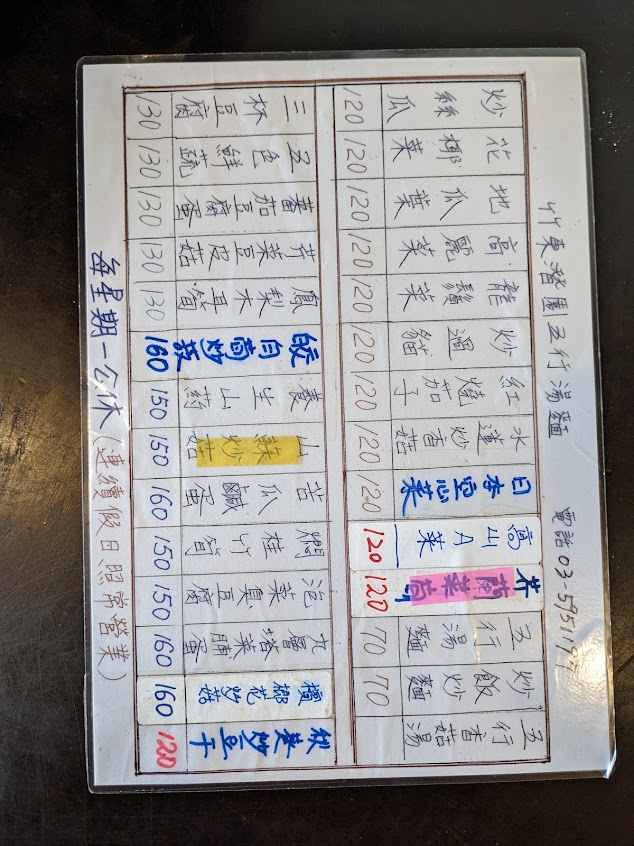 竹東潛園五行湯麵 電話03-5951
五行香菇湯
炒飯炒麵 70
五行湯麵 70
芥蘭菜 120
高山A菜 120
日本空心菜 120
水蓮炒香菇 120
紅燒茄子 120
炒過貓 120
龍鬚菜 120
高麗菜 120
地瓜葉 120
花椰菜 120
炒絲瓜 120
秋葵炒豆干 120
檳榔花炒菇 160
九層塔菜脯蛋 160
泡菜臭豆腐 150
燜桂竹筍 150
苦瓜鹹蛋 160
山蘇炒菇 150
養生山葯 150
皎白筍炒 160
鳳梨木耳筍 130
芹菜豆皮菇 130
蕃茄豆腐蛋 130
五色鮮蔬 130
三杯豆腐 130
每星期一公休(連續假日照常營業)